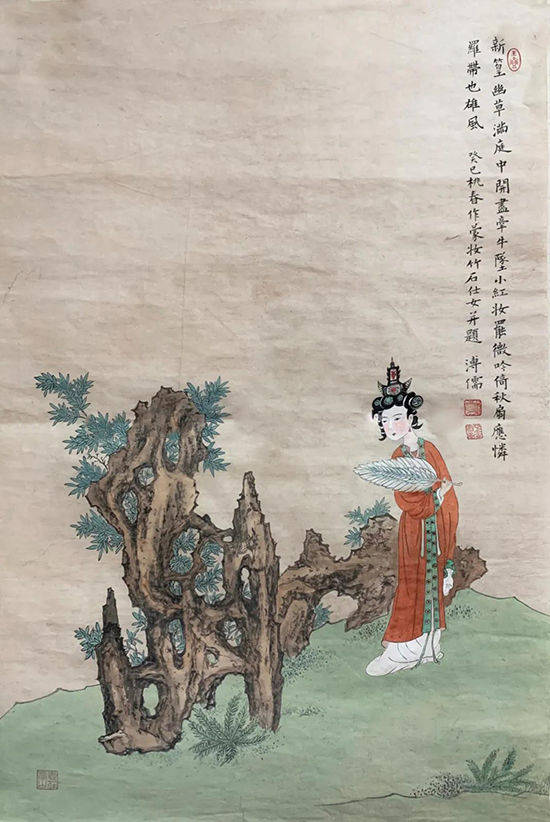 新篁幽草满庭中開盡牽牛墜小紅妆罷微吟倚秋扇應憐
羅帶也雄風
癸巳桃春作蒙妆竹石仕女并題 溥儒